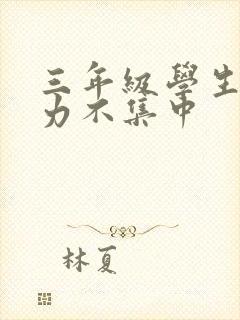 三年級學生
力不集中
林夏